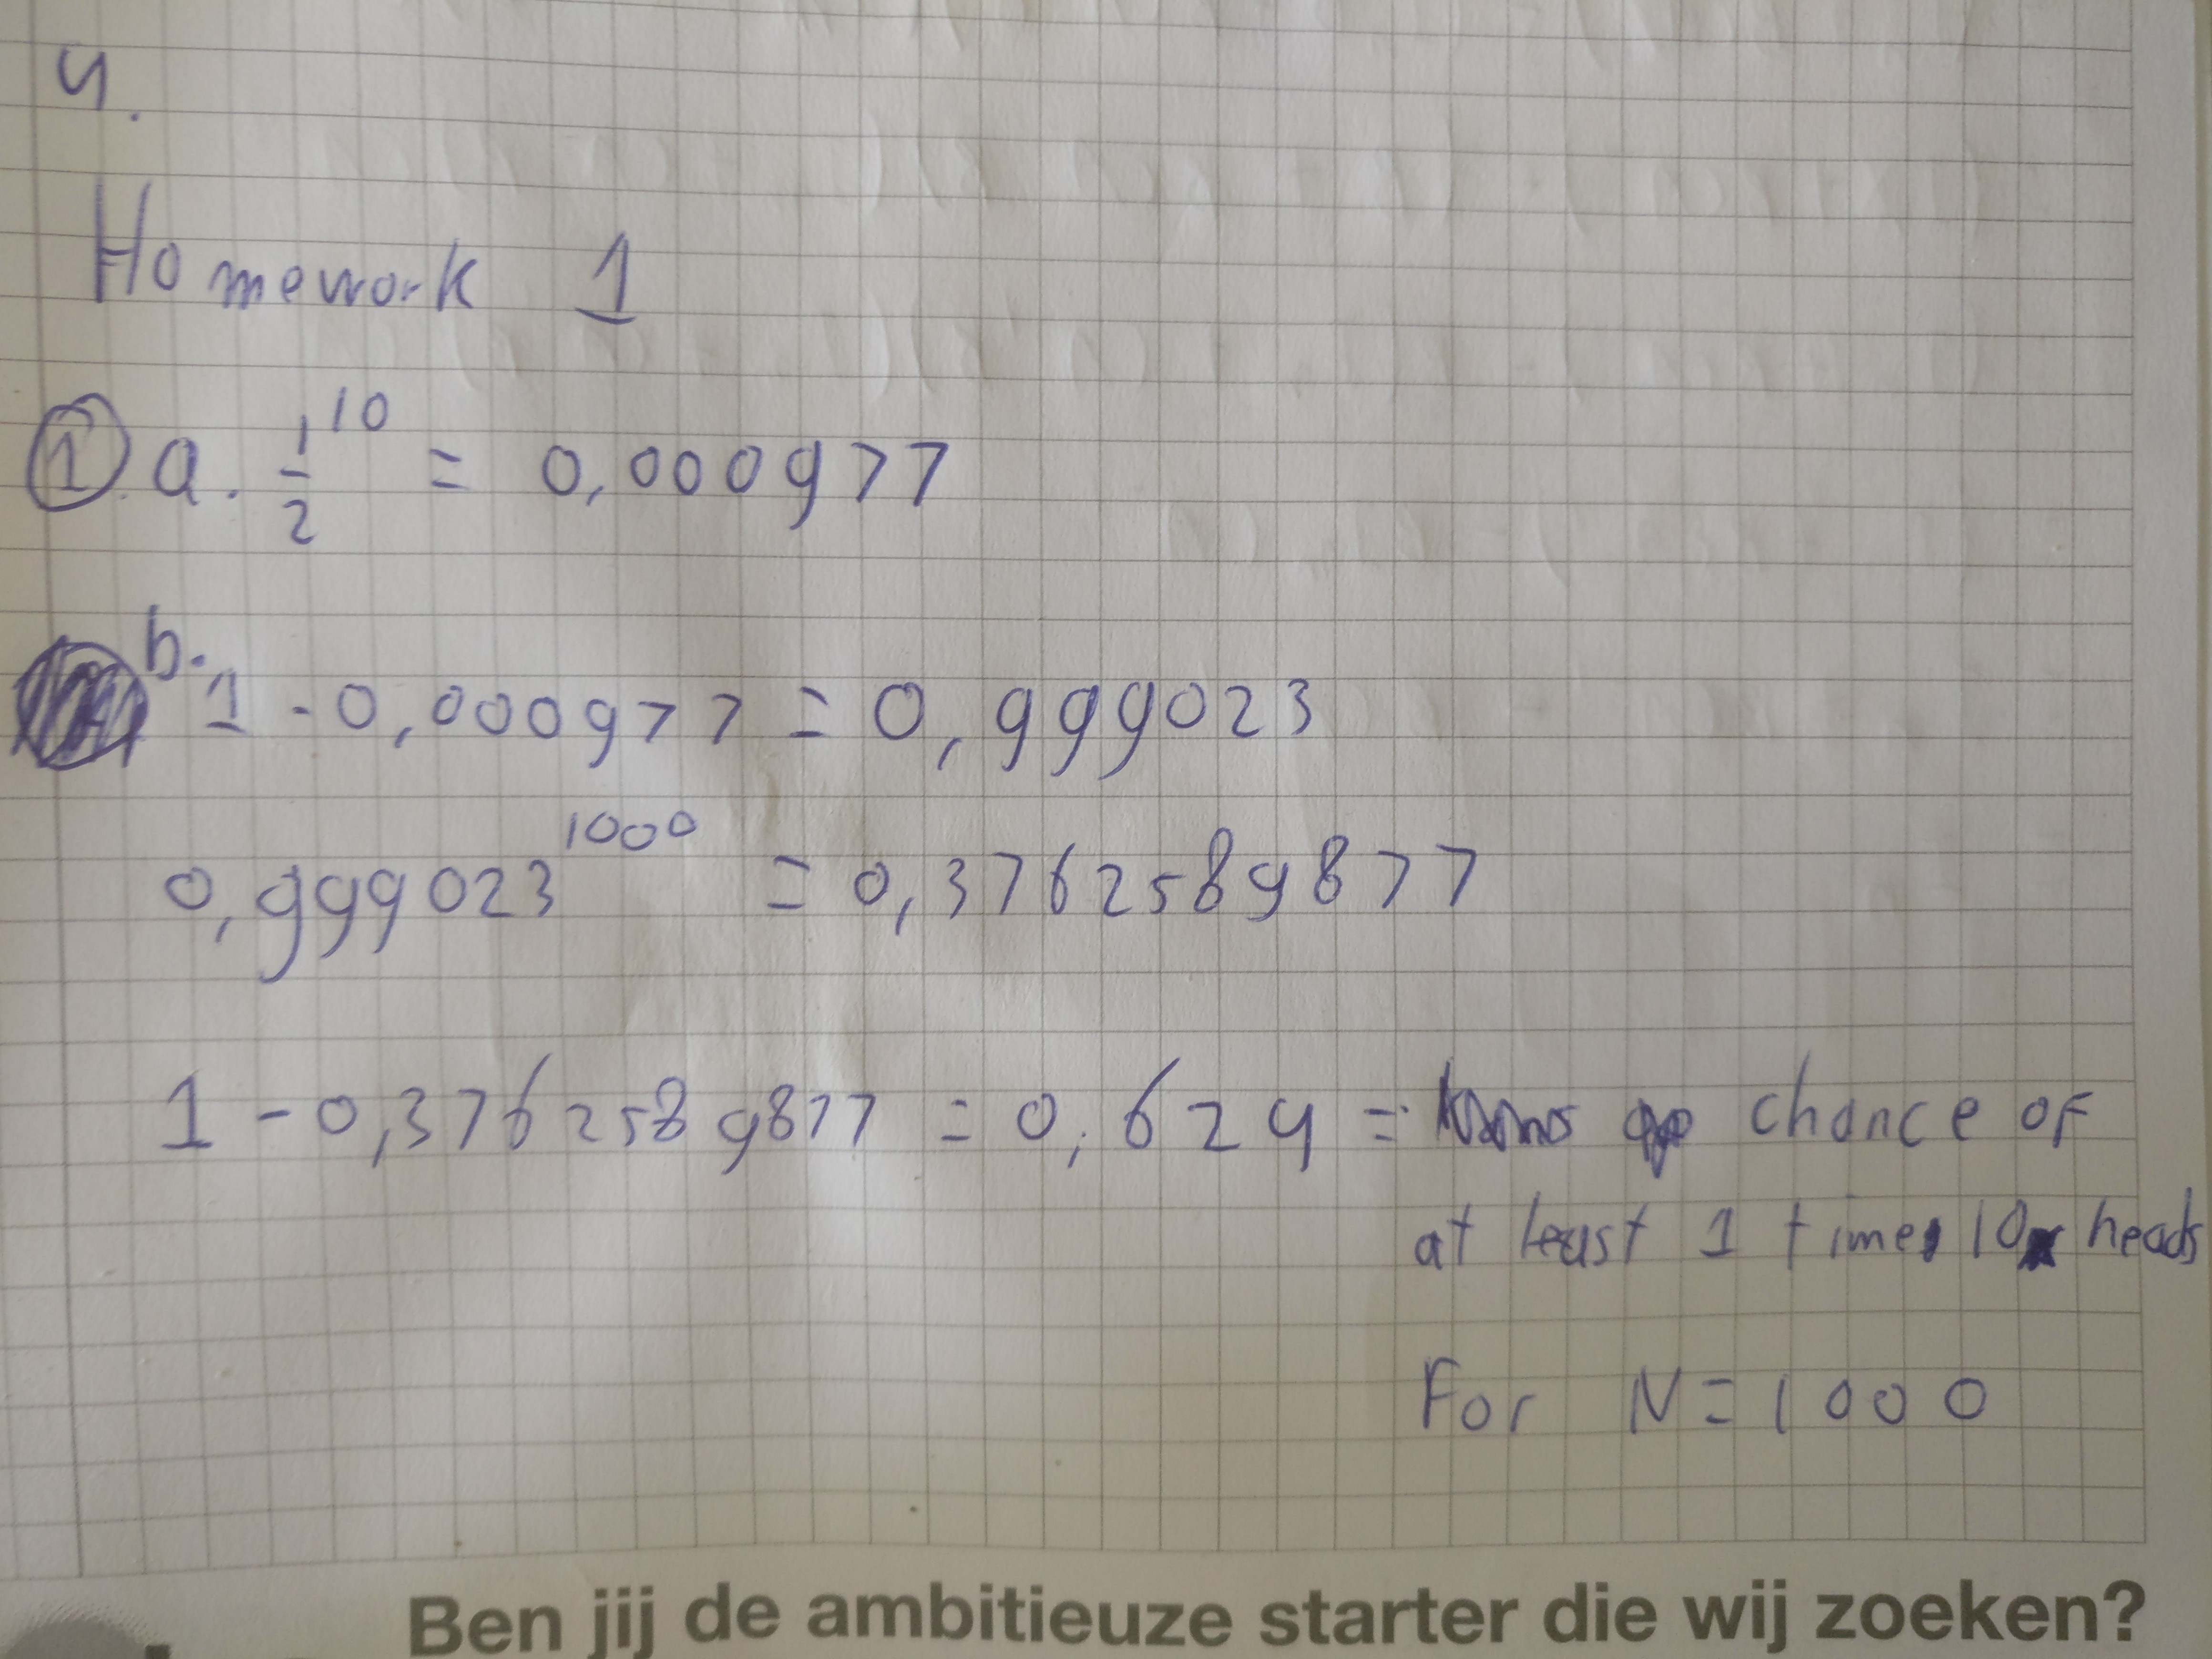 4.
Homework 1
1. a. 1/2^10 = 0,000977
b.
1 - 0,000977 = 0,999023
0,999023^1000 = 0,3762589877
1 - 0,3762589877 = 0,624 = chance of
at least 1 times 10x heads
For N = 1000
Ben jij de ambitieuze starter die wij zoeken?